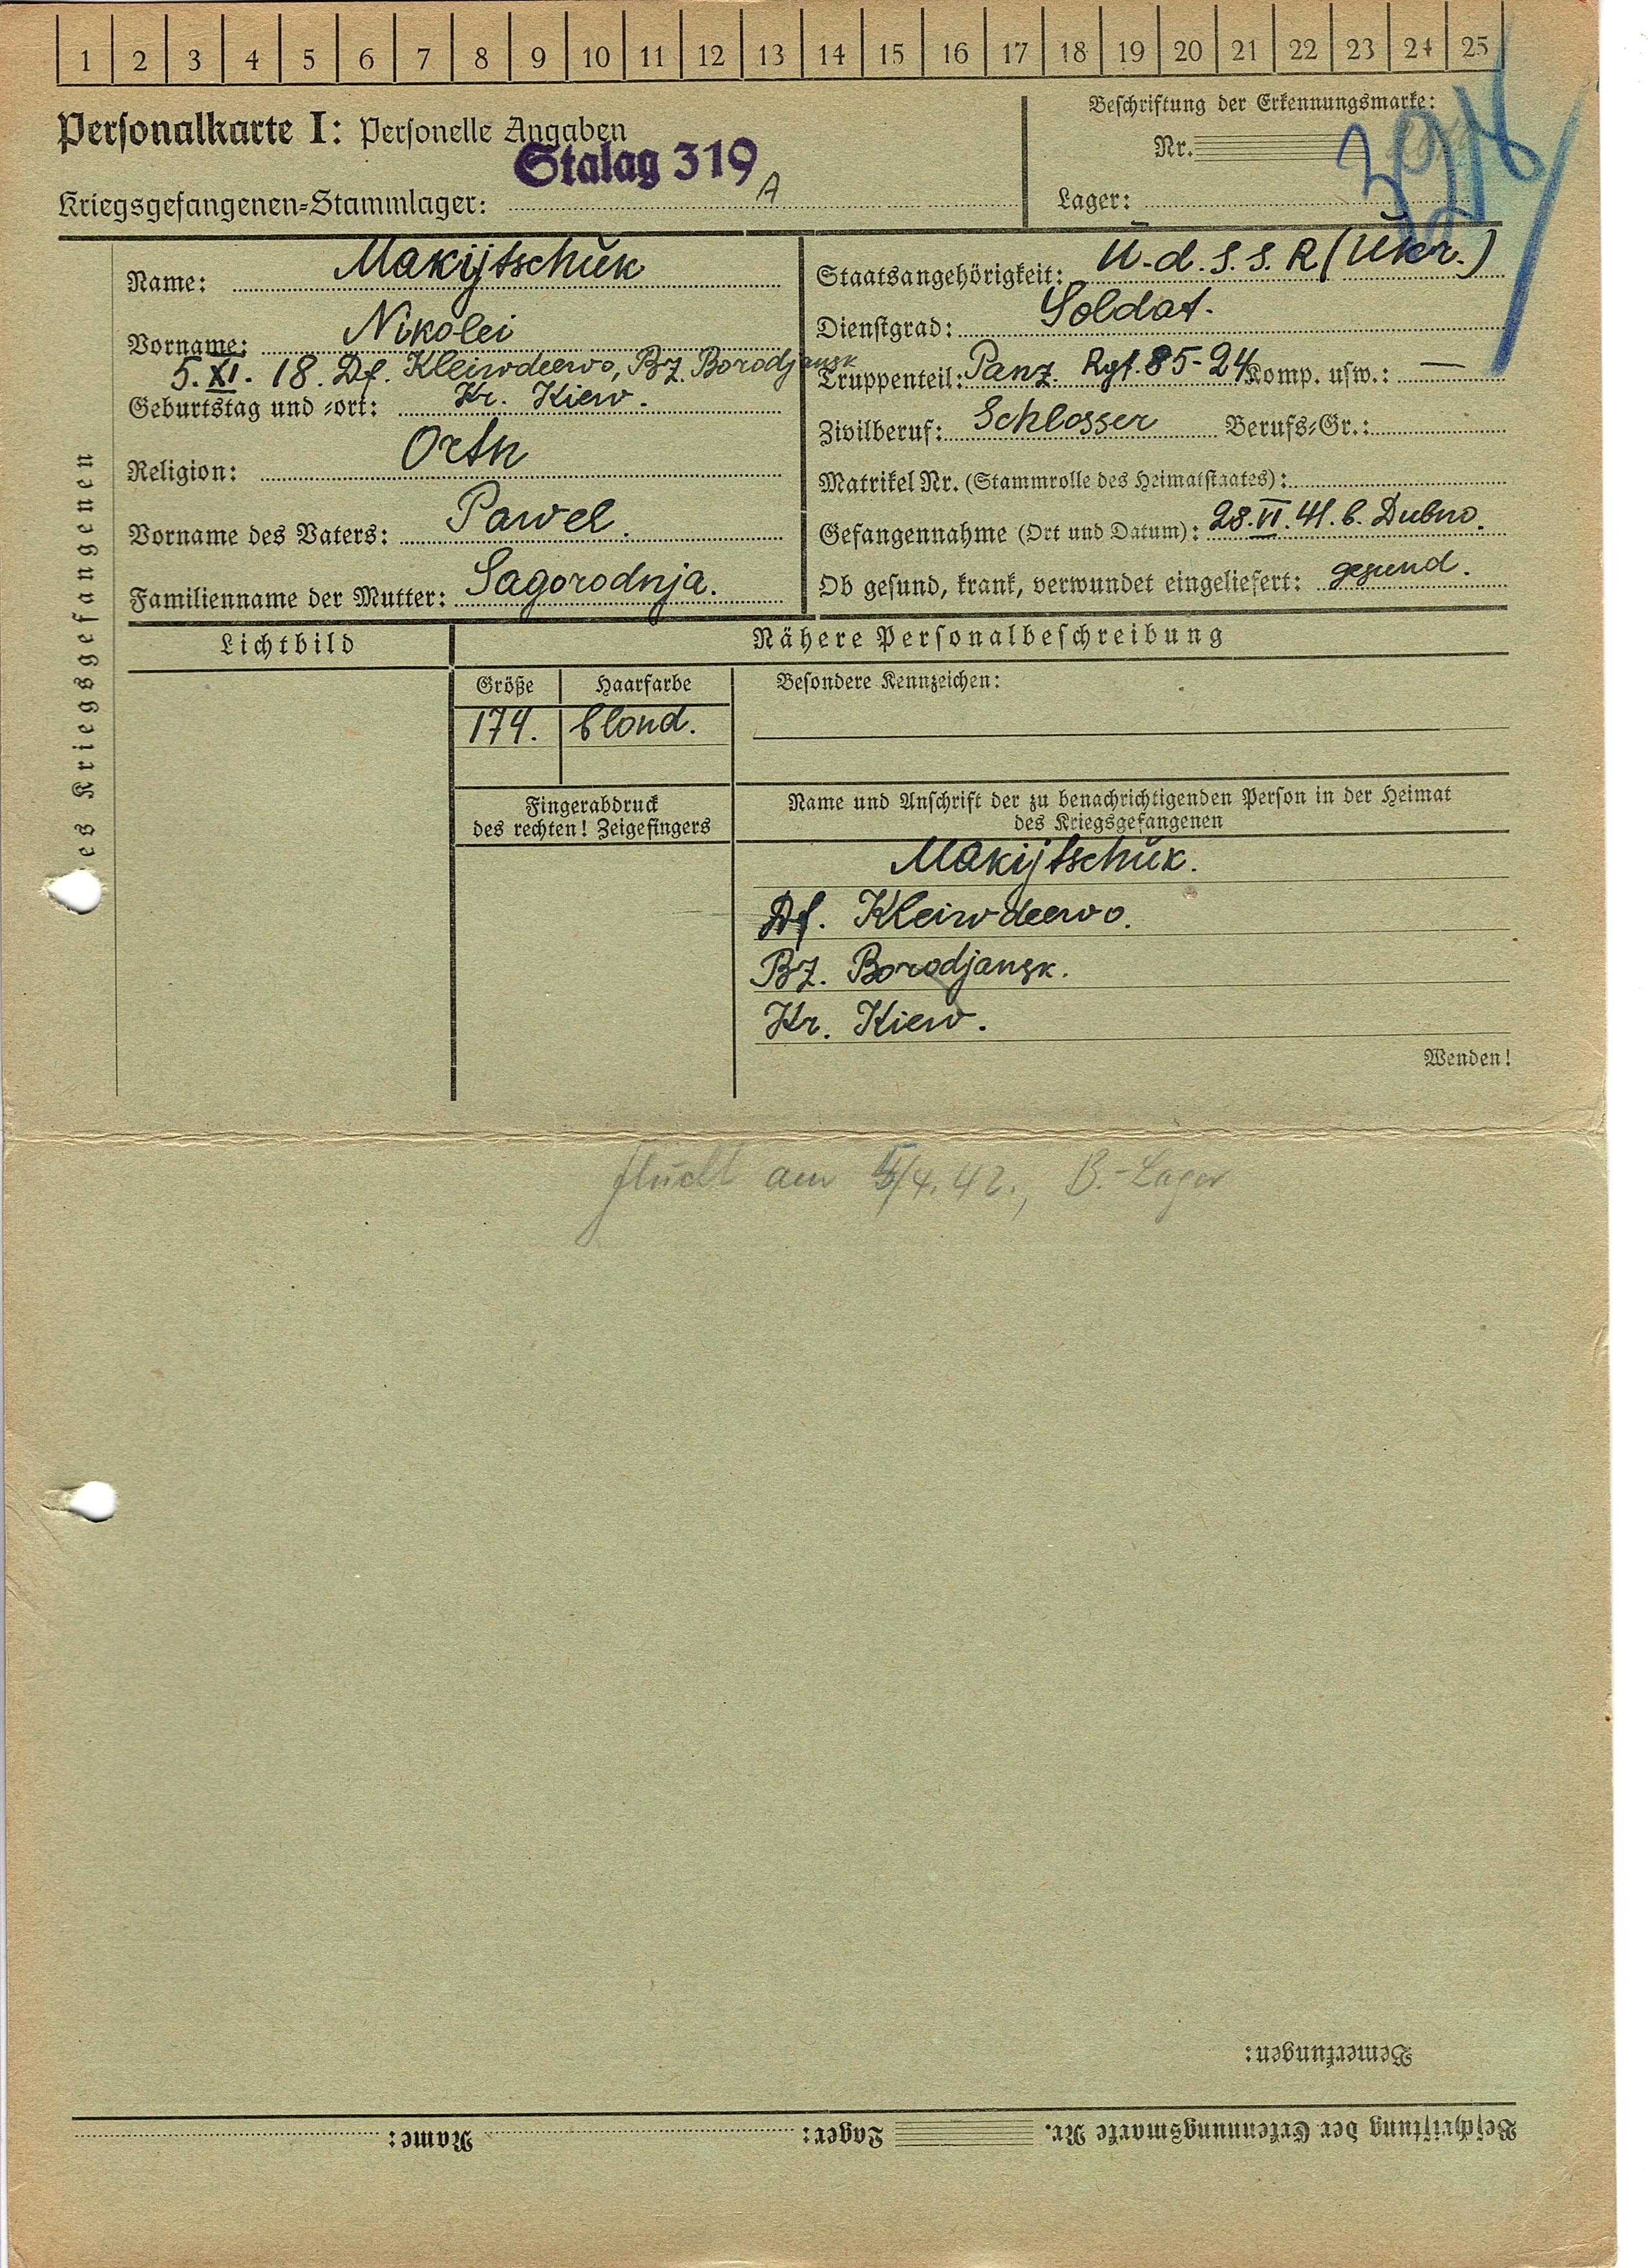 1 2 3 4 5 6 7 8 9 10 11 12 13 14 15 16 17 18 19 20 21 22 23 24 25
Personalkarte I: Personelle Angaben
Stalag 319 A
Kriegsgefangenen-Stammlager:
Beschriftung der Erkennungsmarke:
Nr.
Lager:
des Kriegsgefangenen
Name: Makijtschuk
Vorname: Nikolei
5. XI. 18. Df. Kleiwdeewo, Bz. Borodjansk
Geburtstag und -ort: Kr. Kiew.
Religion: Orth
Vorname des Vaters: Pawel.
Familienname der Mutter: Sagorodnja.
Staatsangehörigkeit: U.d.S.S.R (Ukr.)
Dienstgrad: Soldat.
Truppenteil: Panz. Rgt. 85-24 Komp. usw.: —
Zivilberuf: Schlosser Berufs-Gr.:
Matrikel Nr. (Stammrolle des Heimatstaates):
Gefangennahme (Ort und Datum): 28.VI.41. b. Dubno.
Ob gesund, krank, verwundet eingeliefert: gesund.
Lichtbild
Nähere Personalbeschreibung
Größe Haarfarbe Besondere Kennzeichen:
174. blond.
Fingerabdruck
des rechten! Zeigefingers
Name und Anschrift der zu benachrichtigenden Person in der Heimat
des Kriegsgefangenen
Makijtschuk.
Df. Kleiwdeewo.
Bz. Borodjansk.
Kr. Kiew.
Wenden!
flucht am 5/4.42., B.-Lager
Bemerkungen:
Beschriftung der Erkennungsmarke Nr. Lager: Name: